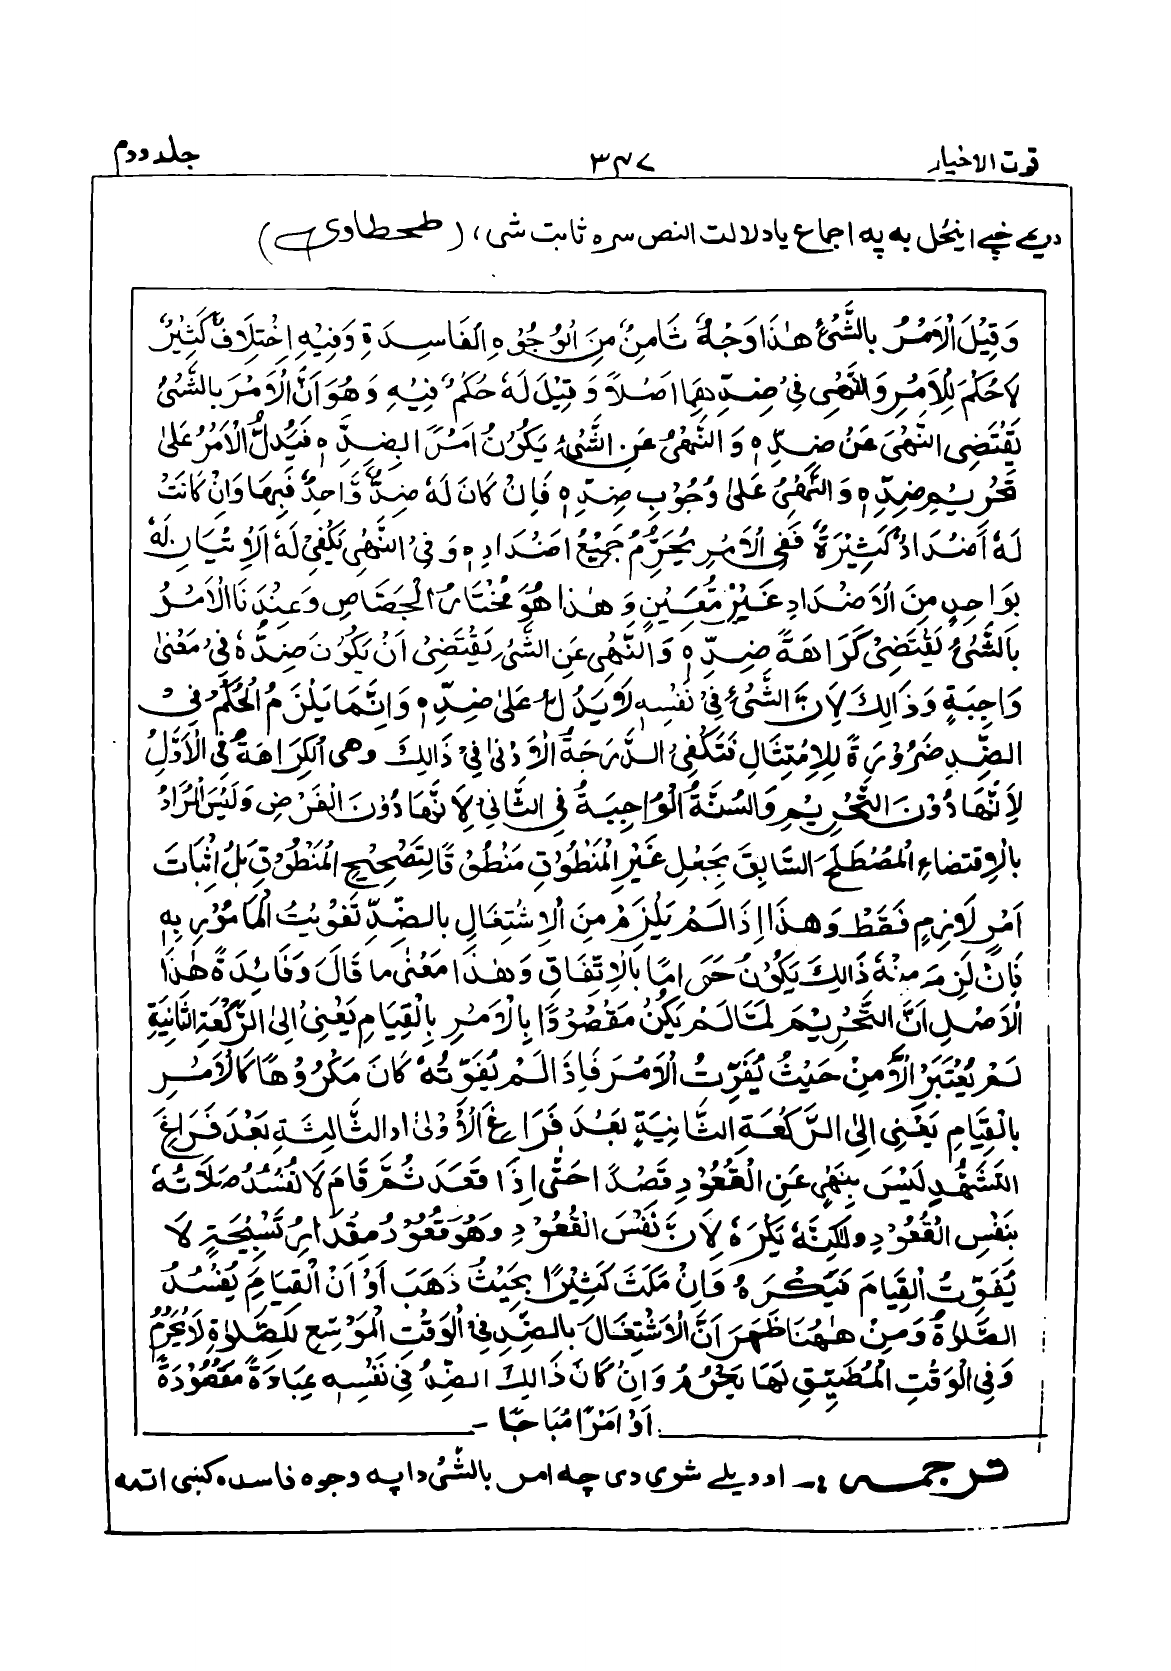 قوت الاخیار ۳۴۷ جلد دوم
دریمے خبے اینځل به په اجماع یا دلالت النص سره ثابت شی، (طحطاوی)
وَقِيْلَ الْاَمْرُ بِالشَّئْ هٰذَا وَجْهٌ ثَامِنٌ مِنَ الْوُجُوْهِ الْفَاسِدَةِ وَفِيْهِ اِخْتِلَافٌ كَثِيْرٌ
لَاحُكْمَ لِلْاَمْرِ وَالنَّهْىِ فِىْ ضِدِّهِمَا اَصْلًا وَقِيْلَ لَهٗ حُكْمٌ فِيْهِ وَهُوَ اَنَّ الْاَمْرَ بِالشَّئْ
يَقْتَضِى النَّهْىَ عَنْ ضِدِّهٖ وَ النَّهْىُ عَنِ الشَّئْ يَكُوْنُ اَمْرًا بِضِدِّهٖ فَيَدُلُّ الْاَمْرُ عَلٰى
تَحْرِيْمِ ضِدِّهٖ وَالنَّهْىُ عَلٰى وُجُوْبِ ضِدِّهٖ فَاِنْ كَانَ لَهٗ ضِدٌّ وَّاحِدٌ فَبِهَا وَاِنْ كَانَتْ
لَهٗ اَضْدَادٌ كَثِيْرَةٌ فَفِى الْاَمْرِ يَحْرُمُ جَمِيْعُ اَضْدَادِهٖ وَفِى النَّهْىِ يَكْفِىْ لَهٗ الْاِتْيَانُ لَهٗ
بِوَاحِدٍ مِنَ الْاَضْدَادِ غَيْرَ مُعَيَّنٍ وَهٰذَا هُوَ مُخْتَارُ الْجَصَّاصِ وَعِنْدَنَا الْاَمْرُ
بِالشَّئْ يَقْتَضِىْ كَرَاهَةَ ضِدِّهٖ وَالنَّهْىُ عَنِ الشَّئْ يَقْتَضِىْ اَنْ يَكُوْنَ ضِدُّهٗ فِىْ مَعْنٰى
وَاجِبَةٍ وَذَالِكَ لِاَنَّ الشَّئَْ فِىْ نَفْسِهٖ لَا يَدُلُّ عَلٰى ضِدِّهٖ وَاِنَّمَا يَلْزَمُ الْحُكْمُ فِىْ
الضِّدِّ ضَرُوْرَةً لِلْاِمْتِثَالِ فَتَكْفِىْ الدَّرَجَةُ الْاَدْنٰى فِىْ ذَالِكَ وهى الْكَرَاهَةُ فِى الْاَوَّلِ
لِاَنَّهَا دُوْنَ التَّحْرِيْمِ وَالسُّنَّةُ الْوَاجِبَةُ فِى الثَّانِىْ لِاَنَّهَا دُوْنَ الْفَرْضِ وَلَيْسَ الْمُرَادُ
بِالْاِقْتِضَاءِ الْمُصْطَلَحَ السَّابِقَ بِجَعْلِ غَيْرِ الْمَنْطُوْقِ مَنْطُوْقًا لِتَصْحِيْحِ الْمَنْطُوْقِ بَلْ اِثْبَاتَ
اَمْرٍ لَازِمٍ فَقَطْ وَهٰذَا اِذَا لَمْ يَلْزَمْ مِنَ الْاِشْتِغَالِ بِالضِّدِّ تَفْوِيْتُ الْمَأْمُوْرِ بِهٖ
فَاِنْ لَزِمَ مِنْهُ ذَالِكَ يَكُوْنُ حَرَامًا بِالْاِتِّفَاقِ وَهٰذَا مَعْنٰى مَا قَالَ وَفَائِدَةُ هٰذَا
الْاَصْلِ اَنَّ التَّحْرِيْمَ لَمَّا لَمْ يَكُنْ مَقْصُوْدًا بِالْاَمْرِ بِالْقِيَامِ يَعْنِىْ اِلَى الرَّكْعَةِ الثَّانِيَةِ
لَمْ يُعْتَبَرْ اِلَّا مِنْ حَيْثُ يُفَوِّتُ الْاَمْرَ فَاِذَا لَمْ يُفَوِّتْهُ كَانَ مَكْرُوْهًا كَالْاَمْرِ
بِالْقِيَامِ يَعْنِىْ اِلَى الرَّكْعَةِ الثَّانِيَةِ بَعْدَ فَرَاغِ الْاُوْلٰى اوالثَّالِثَةِ بَعْدَ فَرَاغِ
التَّشَهُّدِ لَيْسَ بِنَهْىٍ عَنِ الْقُعُوْدِ قَصْدًا حَتّٰى اِذَا قَعَدَ ثُمَّ قَامَ لَا تَفْسُدُ صَلَاتُهٗ
بِنَفْسِ الْقُعُوْدِ وَلٰكِنَّهٗ يَكْرَهُ لِاَنَّ نَفْسَ الْقُعُوْدِ وَهُوَ قُعُوْدُ مِقْدَارِ تَسْبِيْحَةٍ لَا
يُفَوِّتُ الْقِيَامَ فَيُكْرَهُ وَاِنْ مَكَثَ كَثِيْرًا بِحَيْثُ ذَهَبَ اَوْ اَنَ الْقِيَامِ يَفْسُدُ
الصَّلٰوةُ وَمِنْ هٰهُنَا ظَهَرَ اَنَّ الْاِشْتِغَالَ بِالضِّدِّ فِى الْوَقْتِ الْمُوَسَّعِ لِلصَّلٰوةِ لَا يَحْرُمُ
وَفِى الْوَقْتِ الْمُضَيَّقِ لَهَا يَحْرُمُ وَاِنْ كَانَ ذَالِكَ الضِّدُّ فِىْ نَفْسِهٖ عِبَادَةً مَقْصُوْدَةً
اَوْ اَمْرًا مُبَاحًا ـ
ترجمه :- او ویلے شوی دی چه امر بالشئ دا په وجوه فاسده کښی اتمه